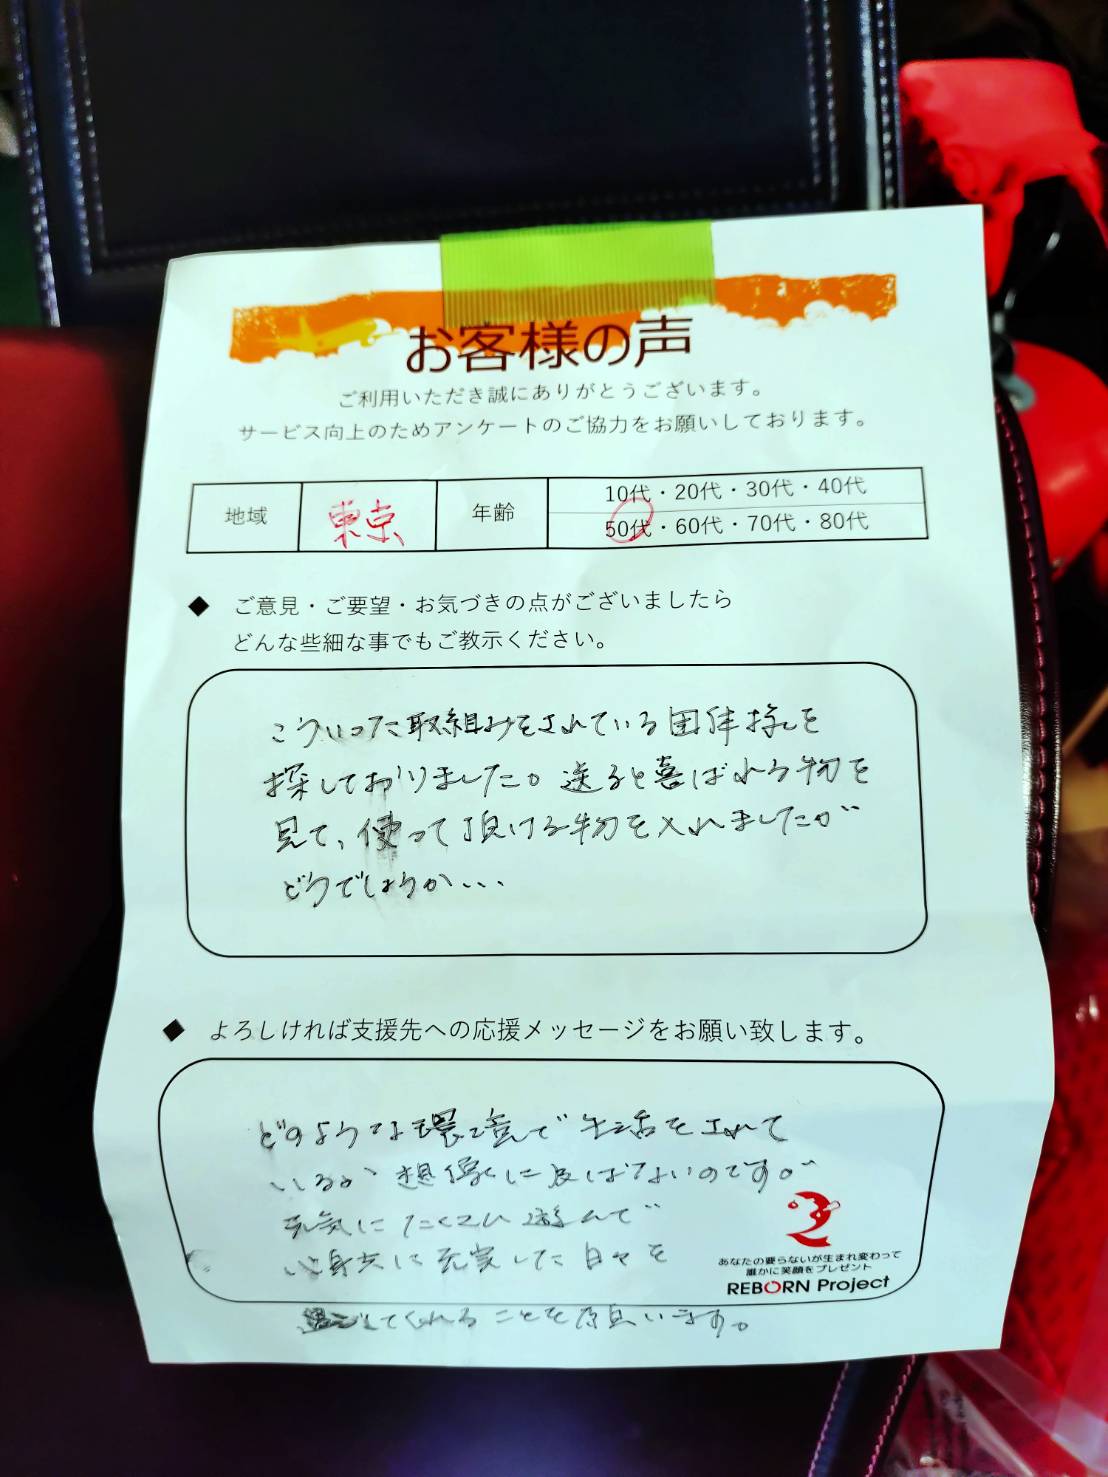 お客様の声
ご利用いただき誠にありがとうございます。
サービス向上のためアンケートのご協力をお願いしております。
地域 東京 年齢 10代・20代・30代・40代
50代・60代・70代・80代
◆ ご意見・ご要望・お気づきの点がございましたら
どんな些細な事でもご教示ください。
こういった取組みをされている団体様を
探しておりました。送ると喜ばれる物を
見て、使って頂ける物を入れましたが
どうでしょうか...
◆ よろしければ支援先への応援メッセージをお願い致します。
どのような環境で生活をされて
いるか想像に及ばないのですが
元気にたくさん遊んで
心身共に充実した日々を
過ごしてくれることを願います。
あなたの要らないが生まれ変わって
誰かに笑顔をプレゼント
REBORN Project